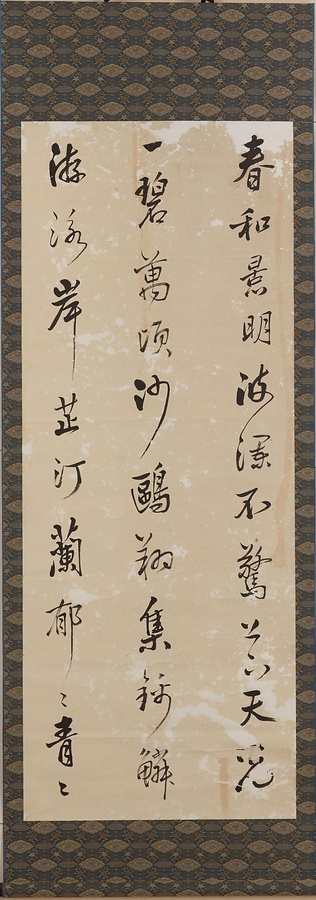 春和景明波瀾不驚上下天光
一碧萬頃沙鷗翔集錦鱗
游泳岸芷汀蘭郁〻青〻